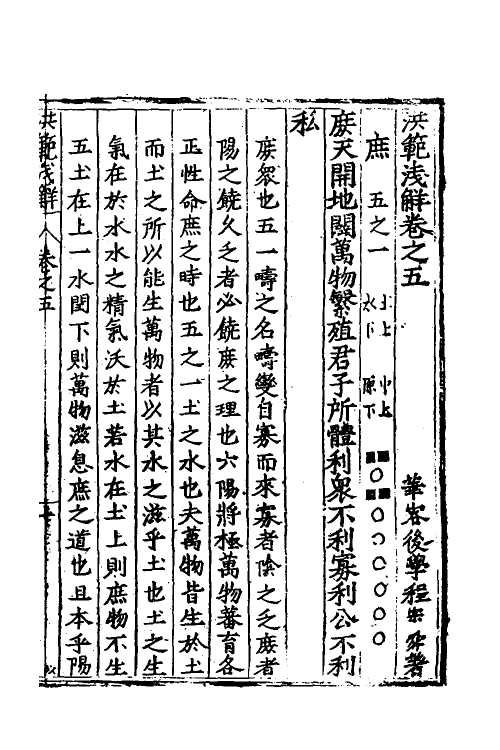 洪範浅解卷之五
華容後學程宗舜著
庶 五之一 土上 中上 水下 原下
庶天開地闢萬物繁殖君子所體利衆不利寡利公不利
私
庶衆也五一疇之名疇變自寡而來寡者陰之乏庶者
陽之饒久乏者必饒庶之理也六陽將極萬物蕃育各
正性命庶之時也五之一土之水也夫萬物皆生於土
而土之所以能生萬物者以其水之滋乎土也土之生
氣在於水水之精氣沃於土若水在土上則庶物不生
五土在上一水閏下則萬物滋息庶之道也且本乎陽
洪範浅解 卷之五